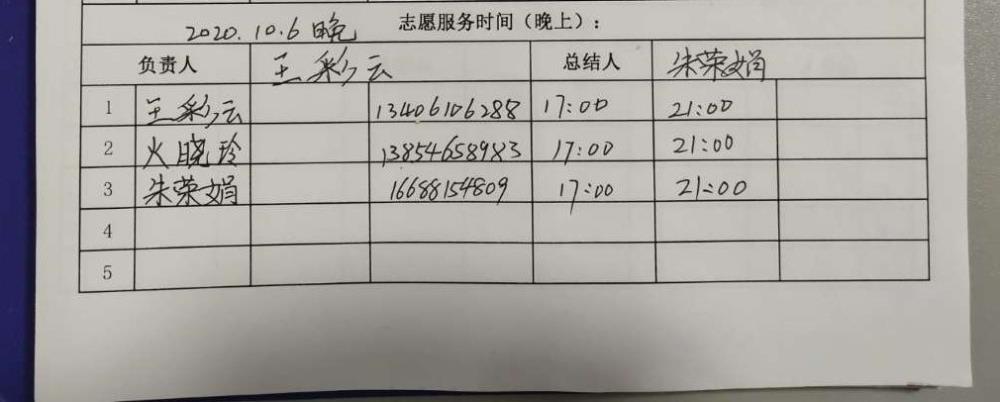 2020.10.6 晚 志愿服务时间（晚上）：
负责人 王彩云 总结人 朱荣娟
1 王彩云 13406106288 17:00 21:00
2 火晓玲 13854658983 17:00 21:00
3 朱荣娟 16688154809 17:00 21:00
4
5